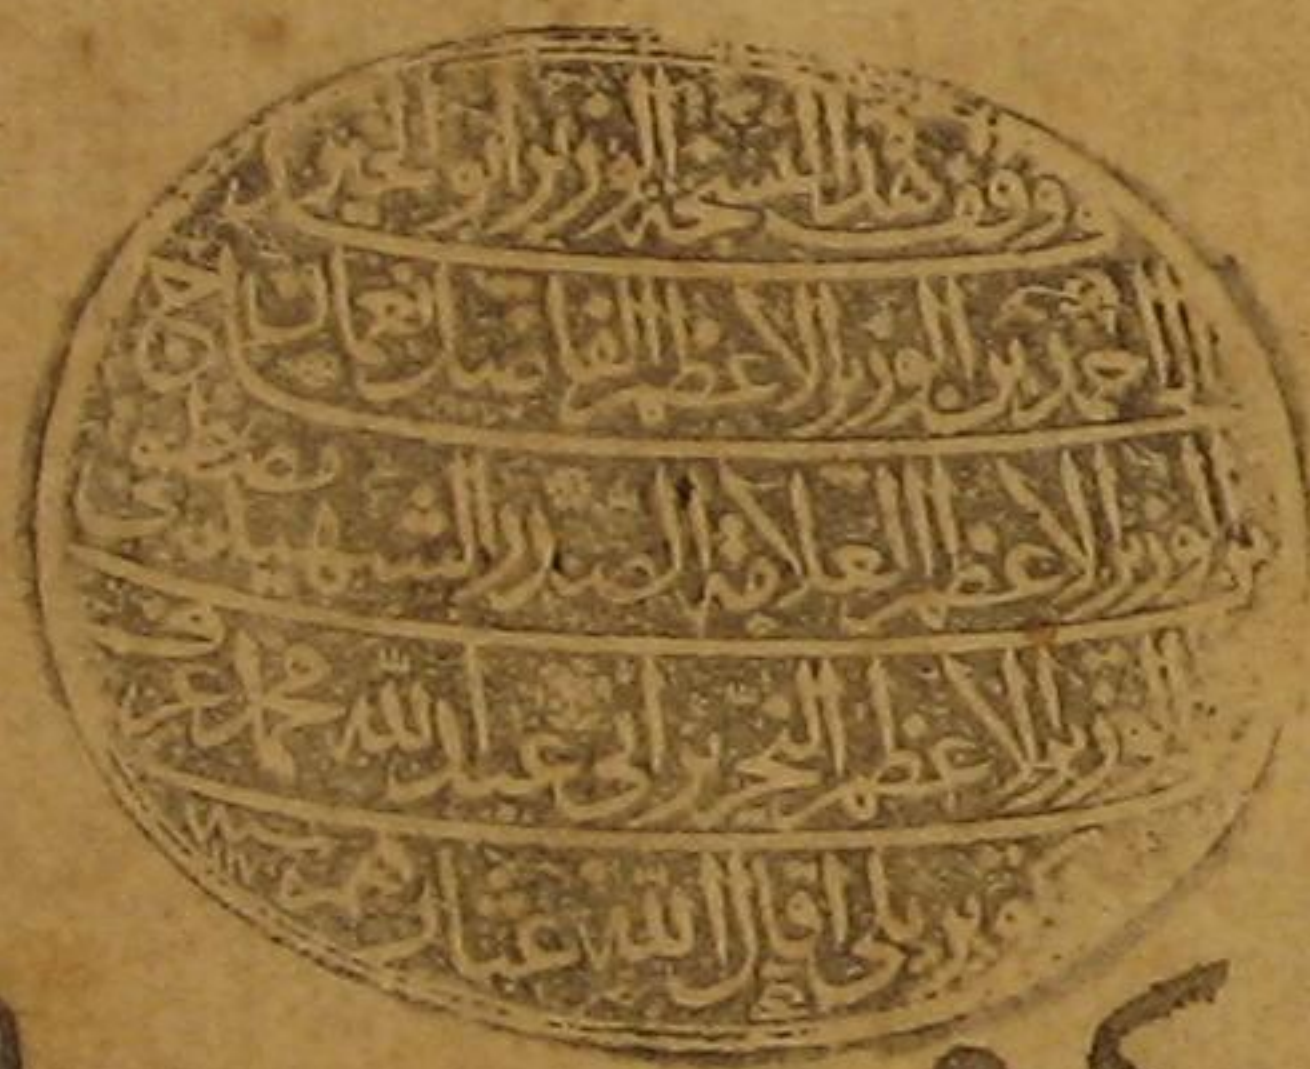 وقف هذا النسخة الوزير ابو الخير
الحاج احمد بن الوزير الاعظم الفاضل نعمان
بن الوزير الاعظم العلامة الصدر الشهيد مصطفى
الوزير الاعظم النحرير ابي عبد الله محمد عرف
كوبريلي اقال الله عثارهم